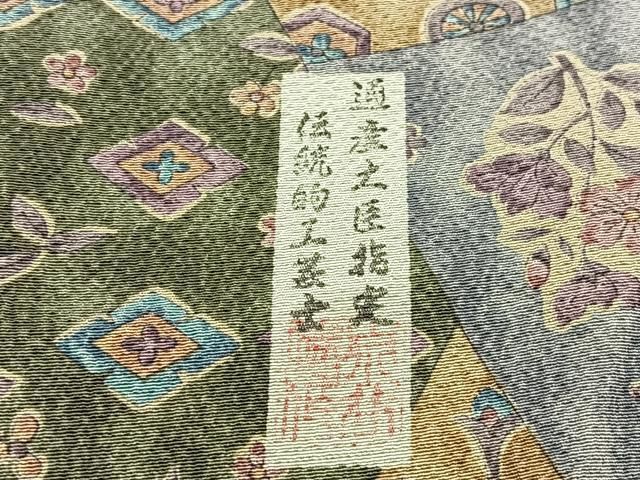 通産大臣指定
伝統的工芸士